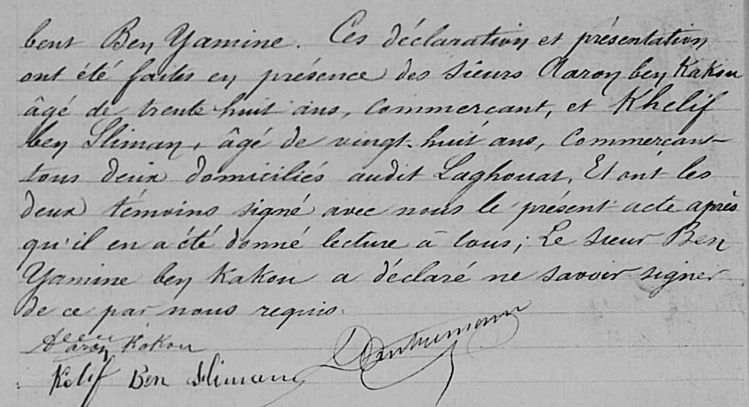 bent Ben Yamine. Ces déclaration et présentation
ont été faites en présence des sieurs Aaron ben Kakou
âgé de trente huit ans, commerçant, et Khelif
ben Sliman, âgé de vingt-huit ans, commerçan-
tous deux domiciliés audit Laghouat, Et ont les
deux témoins signé avec nous le présent acte après
qu'il en a été donné lecture à tous; Le sieur Ben
Yamine ben Kakou a déclaré ne savoir signer
de ce par nous requis.
Kakou
Kelif Ben Slimane